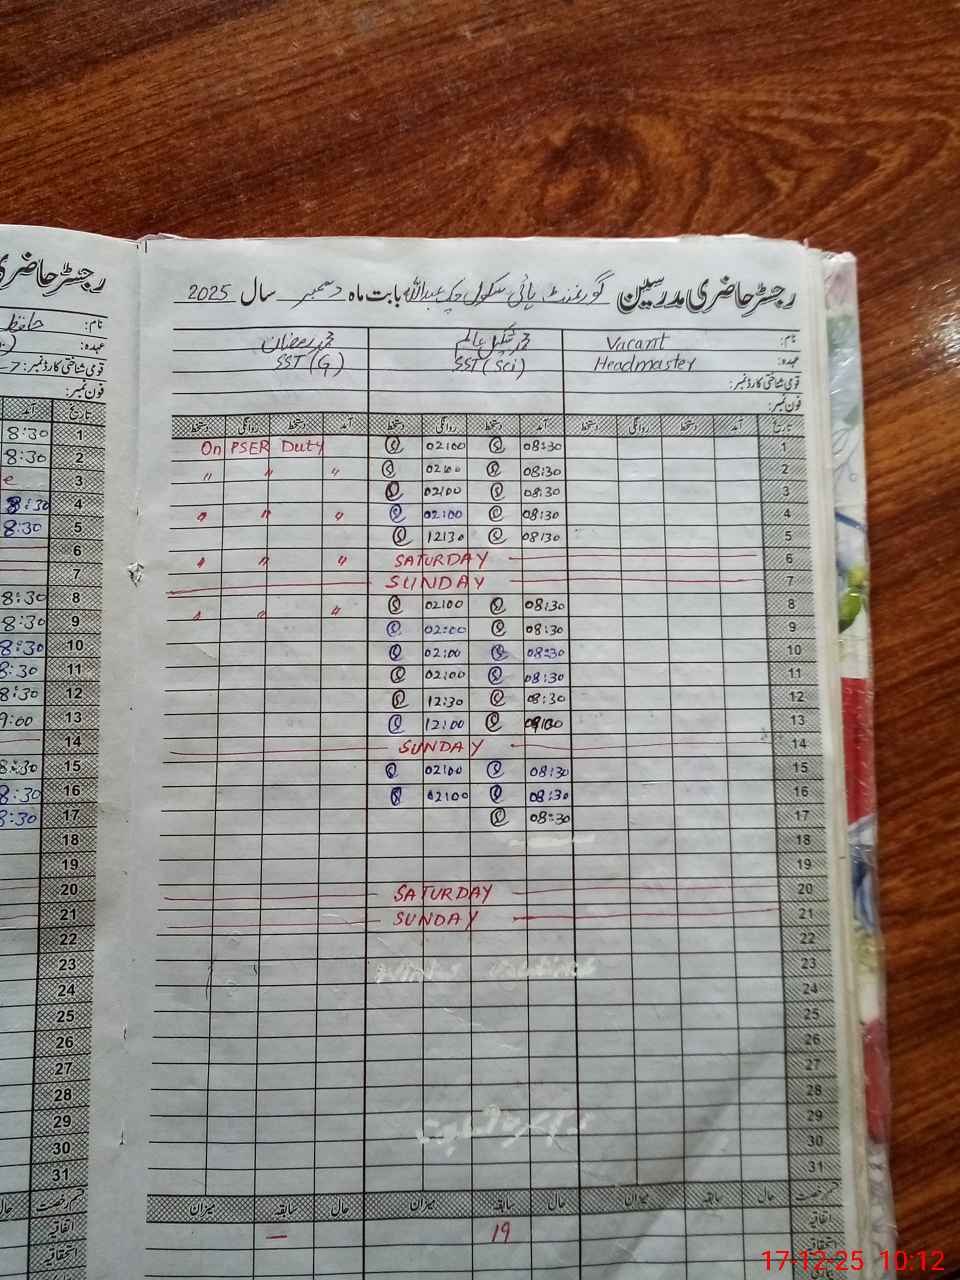 رجسٹر حاضری مدرسین گورنمنٹ ہائی سکول چک عبداللہ بابت ماہ دسمبر سال 2025
نام: Vacant محمد شکیل عالم محمد رمضان
عہدہ: Headmaster SST (Sci) SST (G)
قومی شناختی کارڈ نمبر:
فون نمبر:
تاریخ آمد دستخط روانگی دستخط آمد دستخط روانگی دستخط آمد دستخط روانگی دستخط
1 08:30 02:00 On PSER Duty
2 08:30 02:00 " " "
3 08:30 02:00
4 08:30 02:00 " " "
5 08:30 12:30
6 SATURDAY " " "
7 SUNDAY
8 08:30 02:00 " " "
9 08:30 02:00
10 08:30 02:00
11 08:30 02:00
12 08:30 12:30
13 12:00
14 SUNDAY
15 08:30 02:00
16 08:30 02:00
17 08:30
18
19
20 SATURDAY
21 SUNDAY
22
23
24
25
26
27
28
29
30
31
قسم رخصت حال سابقہ میزان حال سابقہ میزان حال سابقہ میزان
اتفاقیہ 19 —
استحقاقیہ
رجسٹر حاضری
نام: حافظ
عہدہ:
قومی شناختی کارڈ نمبر: 7-
فون نمبر:
تاریخ آمد
1 8:30
2 8:30
3 e
4 8:30
5 8:30
6
7
8 8:30
9 8:30
10 8:30
11 8:30
12 8:30
13 9:00
14
15 8:30
16 8:30
17 8:30
18
19
20
21
22
23
24
25
26
27
28
29
30
31
قسم رخصت حال
اتفاقیہ
استحقاقیہ
17-12-25 10:12